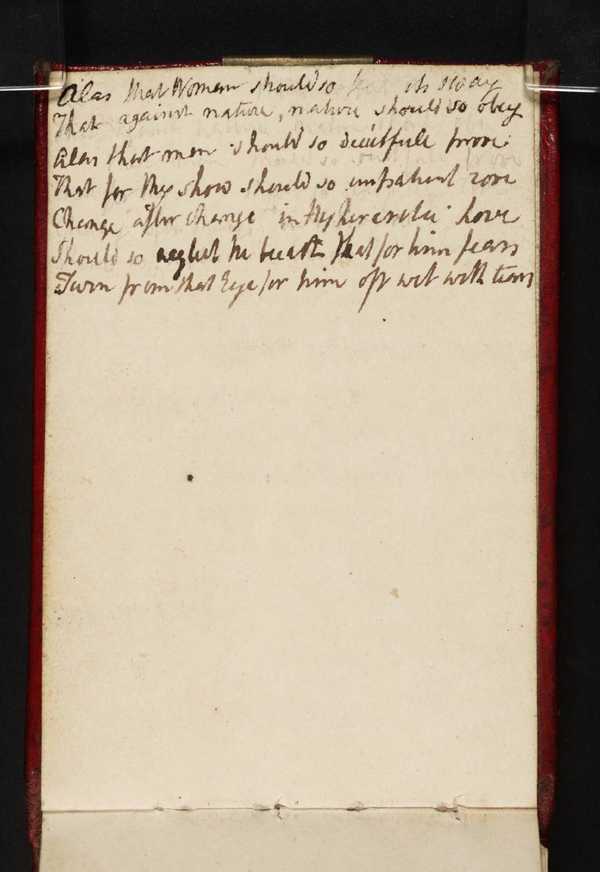 Alas that Woman should so its sway
That against nature, nature should so obey
Alas that man should so deceitfull prove
That for the show should so impatient rove
Change after change in love
Should so neglect the breast that for him fears
Turn from that Eye for him oft wet with tears